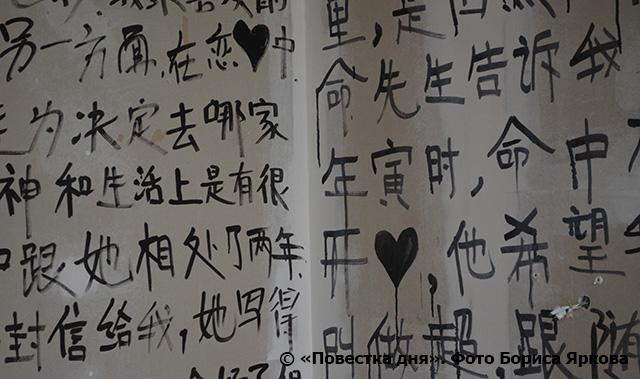 另一方面,在恋♥中
为决定去哪家
神和生活上是有很
跟她相处了两年,
封信给我,她写得
里,是
命先生告诉我
年寅时,命中
开♥,他希望
做超,跟随
© «Повестка дня». Фото Бориса Яркова